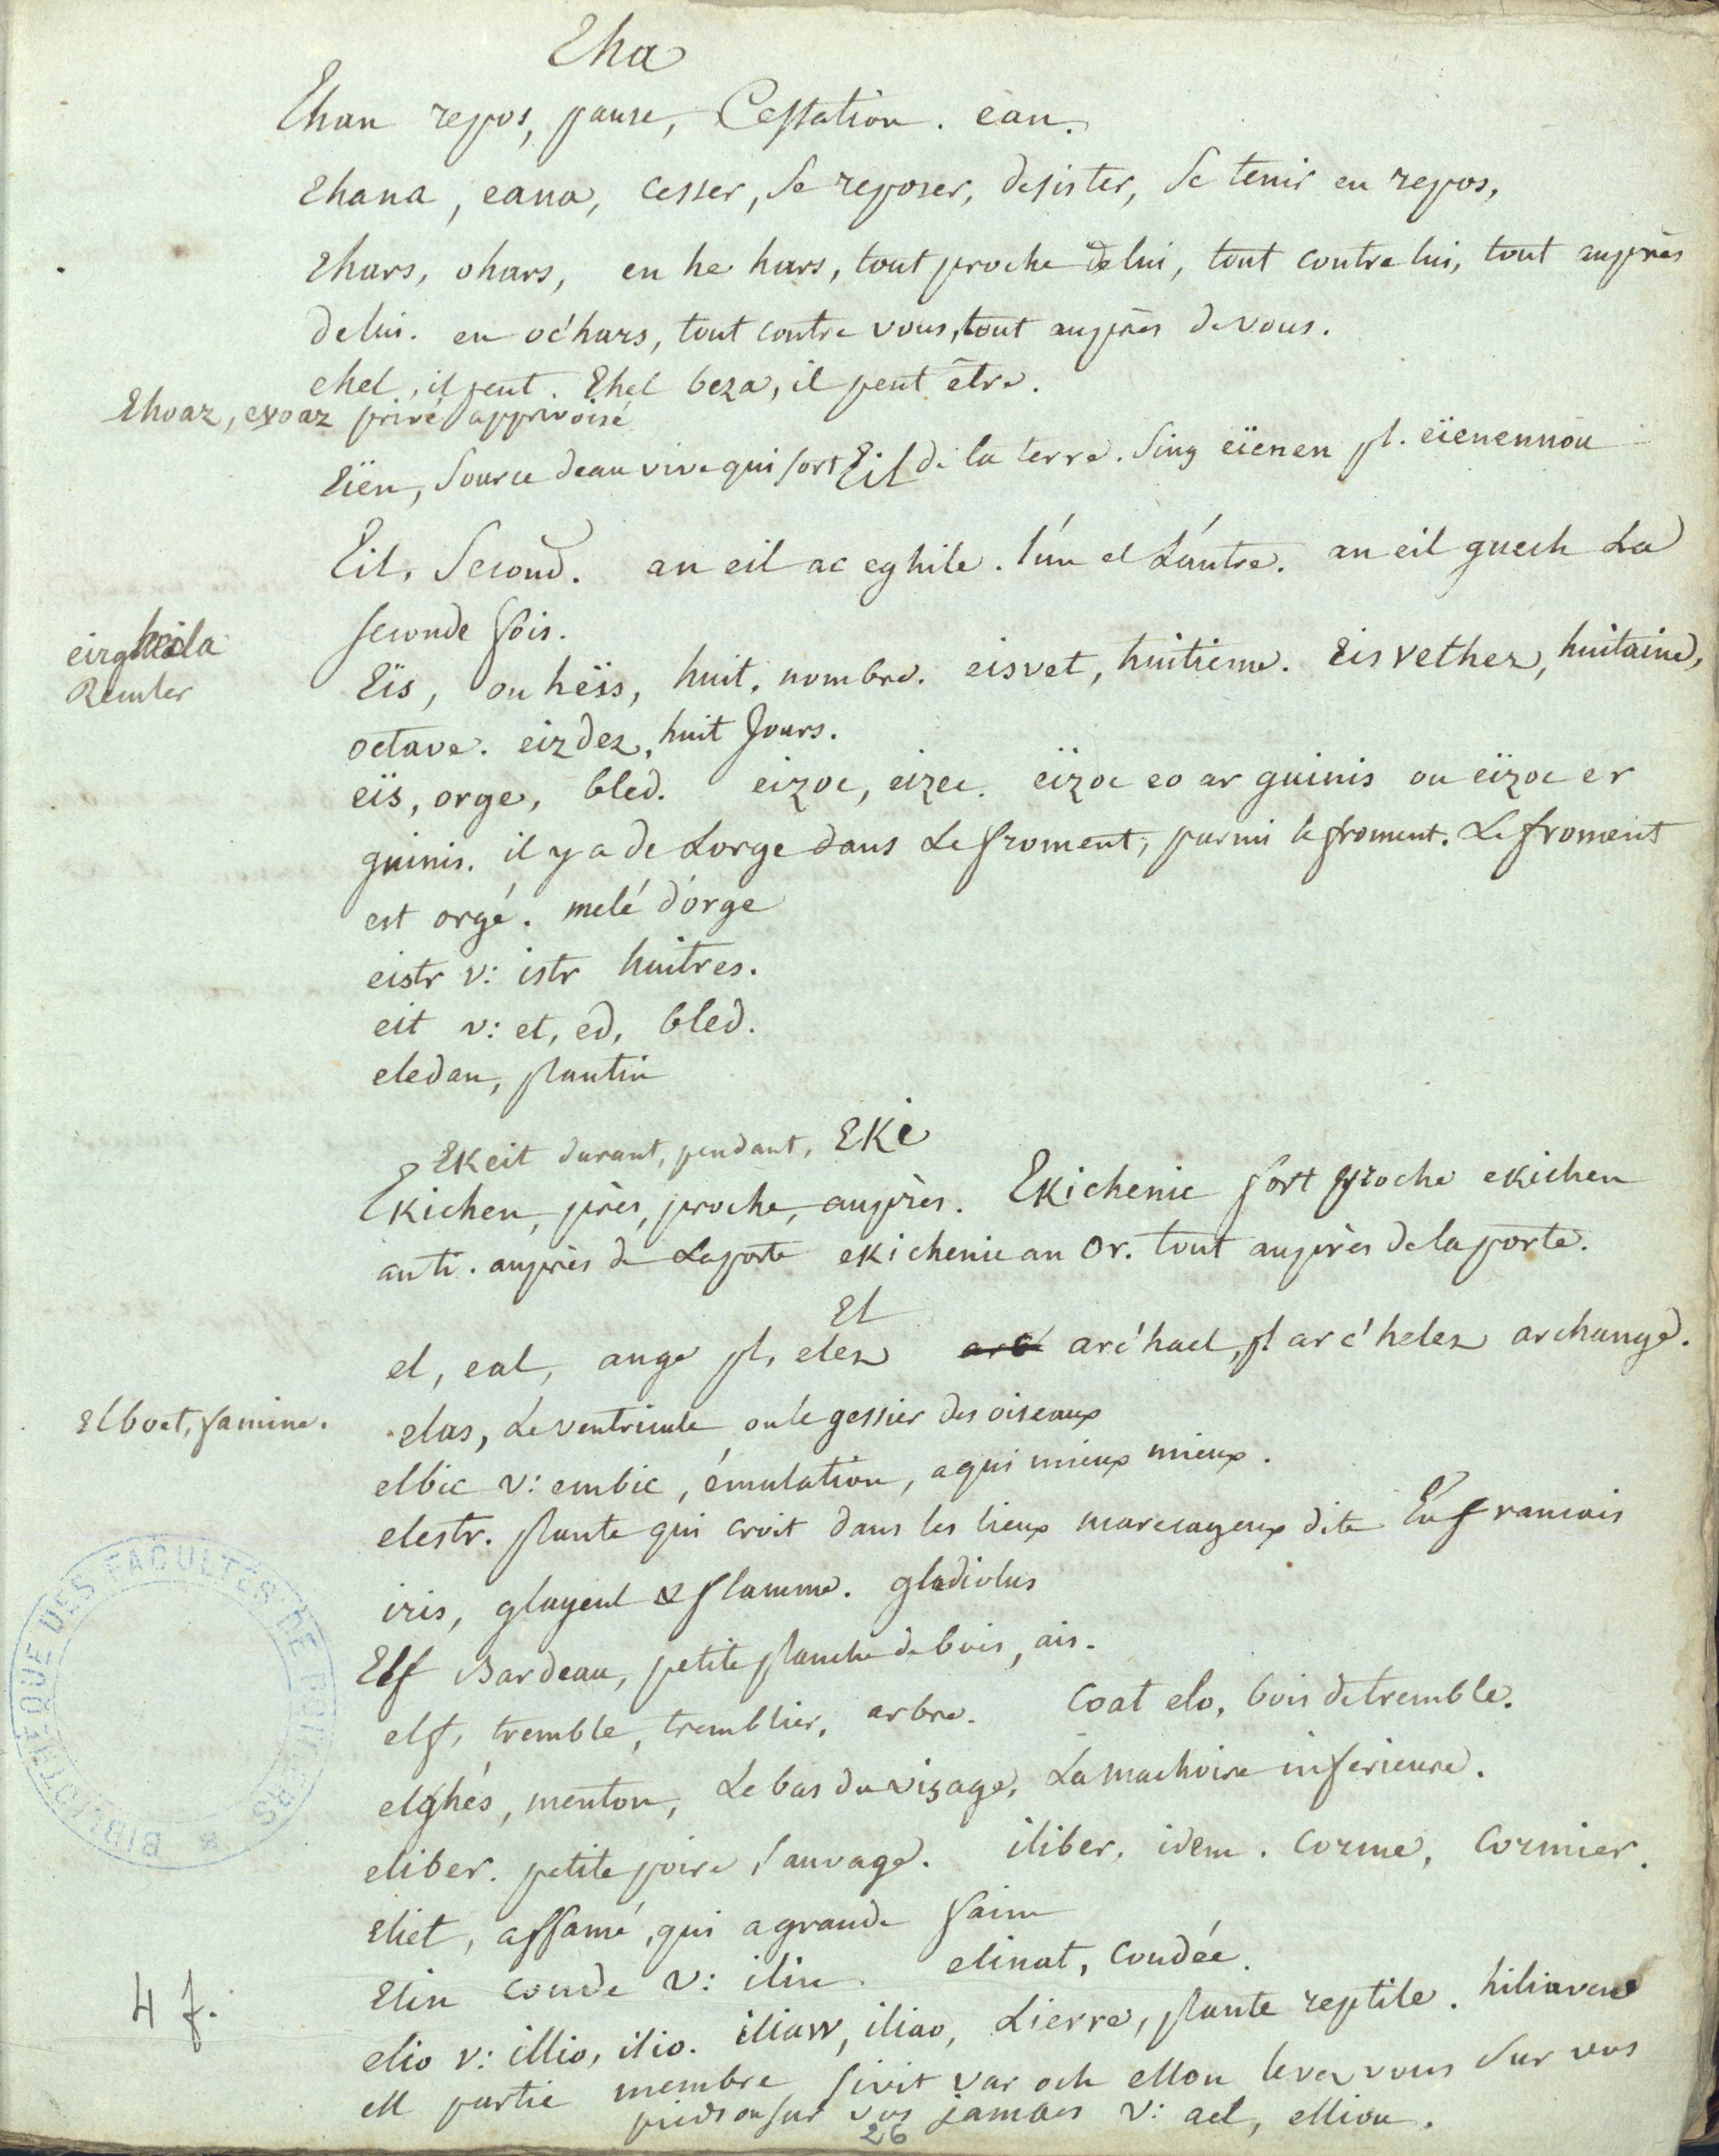 Eha
Ehan repos, pause, Cessation. éan.
Ehana, eana, cesser, Se reposer, desister, Se tenir en repos,
Ehars, ohars, en he hars, tout proche de lui, tout contre lui, tout auprès
de lui. en oc'hars, tout contre vous, tout auprès de vous.
ehel, il peut. Ehel beza, il peut être.
Ehoaz, evoaz privé apprivoisé
Eïen, Source deau vive qui sort de la terre. Sing eïenen pl. eïenennou
Eil
Eil, Second. an eil ac eghile. l'ún et L'áutre. an eil guech La
seconde fois.
eirgheila
Reculer
Eïs, ou heïs, huit, nombre. eisvet, huitieme. Eisvethez, huitaine,
octave. eizdez, huit Jours.
eïs, orge, bled. eizoc, eizec. eïzoc eo ar guinis ou eïzoc er
guinis. il y a de Lorge dans Le froment, parmi le froment. Le froment
est orgé. melé d'orge
eistr v: istr huitres.
eit v: et, ed, bled.
eledan, plantin
Ekeit durant, pendant, EKi
Ekichen, près, proche, auprès. Ekichenic fort proche ekichen
an ti. auprès de Laporte ekichenic an Or. tout auprès de la porte.
El
el, eal, ange pl, elez arc'hael, pl arc'helez archange.
Elboet, famine.
elas, Le ventricule ou le gessier des oiseaux
elbic v: embic, émulation, a qui mieux mieux.
elestr. plante qui croit dans les lieux marecageux dite En francais
iris, glayeul & flamme. gladiolus
Elf Bardeau, petite planche de bois, ais.
elf, tremble, tremblier, arbre. Coat elo, bois de tremble.
elghés, menton, Le bas du visage, La machoire inferieure.
eliber. petite poire sauvage. iliber, idem. Corme, Cormier.
Eliet, affamé, qui a grande faim
Elin coude v: ilin. elinat, Coudée.
elio v: illio, ilio. iliaw, iliao, Lierre, plante reptile. hiliaven
ell partie membre Sivit var och ellou levez vous Sur vos
pieds ou sur vos jambes v: ael, elliou.
4 f.
26
BIBLIOTHEQUE DES FACULTÉS DE POITIERS